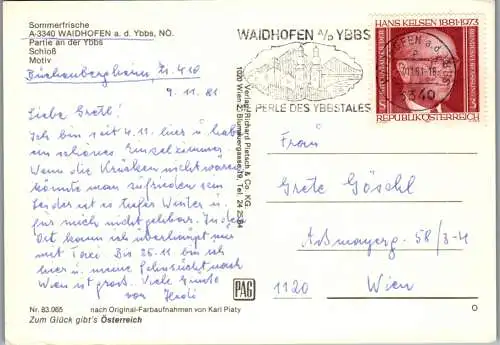 Sommerfrische
A-3340 WAIDHOFEN a. d. Ybbs, NÖ.
Partie an der Ybbs
Schloß
Motiv
Buchenbergheim, Zi. 410
9. 11. 81
Liebe Grete!
Ich bin seit 4.11. hier u. habe
ein schönes Einzelzimmer.
Wenn die Krücken nicht wären
könnte man zufrieden sein
Leider ist es tiefer Winter u.
für mich nicht gehbar. In den
Ort kann ich überhaupt nur
mit Taxi. Bis 25.11 bin ich
hier u. meine Sehnsucht nach
Wien ist groß. Viele Grüße
von Hedi
Nr. 83.065 nach Original-Farbaufnahmen von Karl Piaty
Zum Glück gibt's Österreich
Verlag Richard Pietsch & Co. KG.
1020 Wien 2, Blumauergasse 19, Tel. 24 25 84
PAG
WAIDHOFEN a/d YBBS
PERLE DES YBBSTALES
3340
HANS KELSEN 1881-1973
S 3
REPUBLIK ÖSTERREICH
Frau
Grete Göschl
58/3-4
1120 Wien